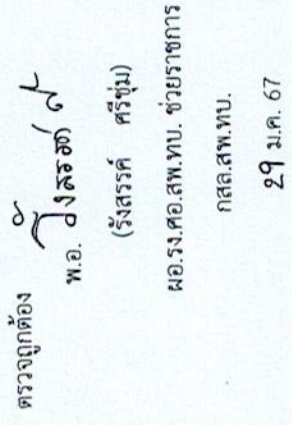 ตรวจถูกต้อง
พ.อ. รังสรรค์
(รังสรรค์ ศรีชุ่ม)
ผอ.รง.ศอ.สพ.ทบ. ช่วยราชการ
กสล.สพ.ทบ.
29 ม.ค. 67